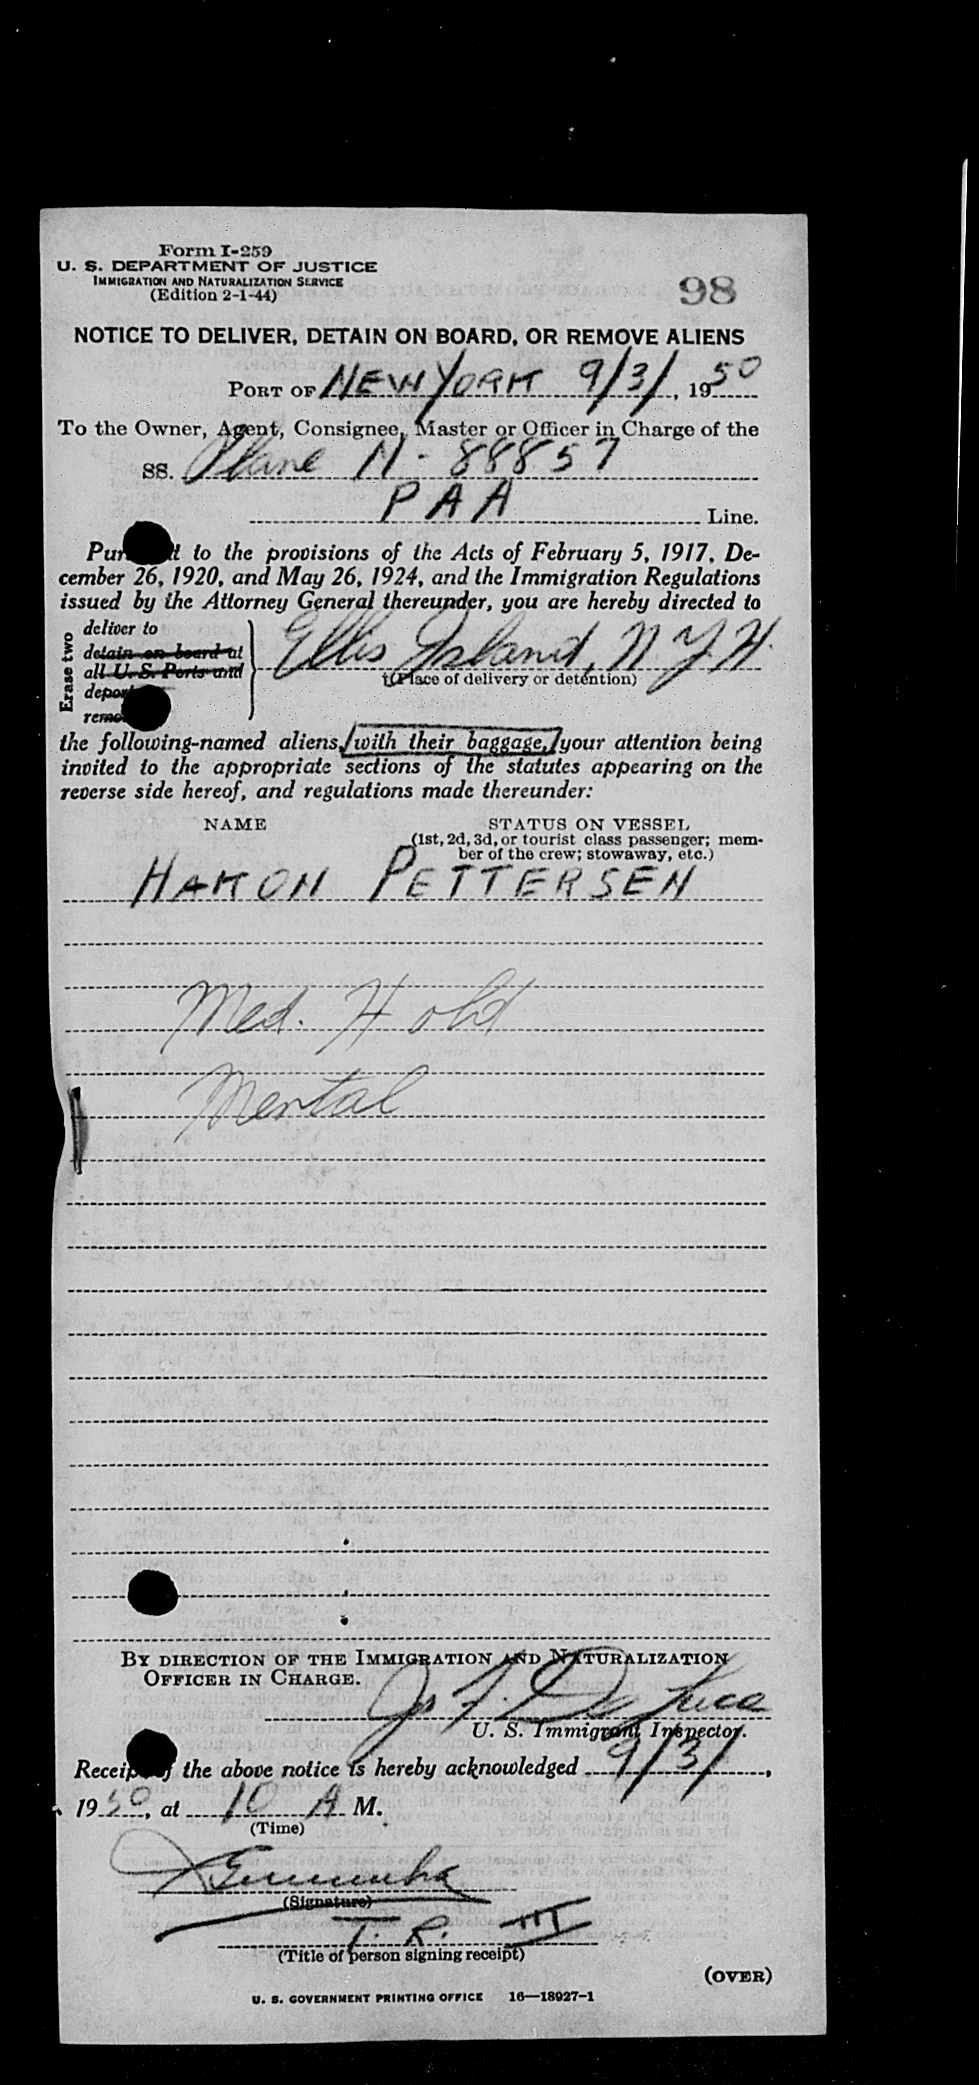 Form I-259
U. S. DEPARTMENT OF JUSTICE
IMMIGRATION AND NATURALIZATION SERVICE
(Edition 2-1-44)
98
NOTICE TO DELIVER, DETAIN ON BOARD, OR REMOVE ALIENS
PORT OF NEW YORK 9/3/, 1950
To the Owner, Agent, Consignee, Master or Officer in Charge of the
SS. Plane N-88857
PAA Line.
Pur t to the provisions of the Acts of February 5, 1917, De-
cember 26, 1920, and May 26, 1924, and the Immigration Regulations
issued by the Attorney General thereunder, you are hereby directed to
Erase two
deliver to
detain on board at
all U. S. Ports and
depor
remo
Ellis Island, N Y H.
†(Place of delivery or detention)
the following-named aliens, with their baggage, your attention being
invited to the appropriate sections of the statutes appearing on the
reverse side hereof, and regulations made thereunder:
NAME
STATUS ON VESSEL
(1st, 2d, 3d, or tourist class passenger; mem-
ber of the crew; stowaway, etc.)
HAKON PETTERSEN
Med. Hold
Mental
BY DIRECTION OF THE IMMIGRATION AND NATURALIZATION
OFFICER IN CHARGE.
De Luca
U. S. Immigrant Inspector.
Receip of the above notice is hereby acknowledged 9/3/,
1950, at 10 A M.
(Time)
(Signature)
T. R. III
(Title of person signing receipt)
(OVER)
U. S. GOVERNMENT PRINTING OFFICE 16—18927-1